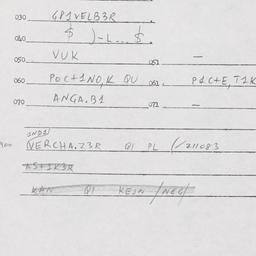 030 GP1VELB3R
040 $ )-L...$.
050 VUK 051 —
060 POC+1NO,K QU 061. P1C+E,T1K
070 ANGA.B1 071 —
UND1
QERCHA.Z3R Q1 PL (/211083
A5+1K3R
KAN Q1 KEJN /NEG/